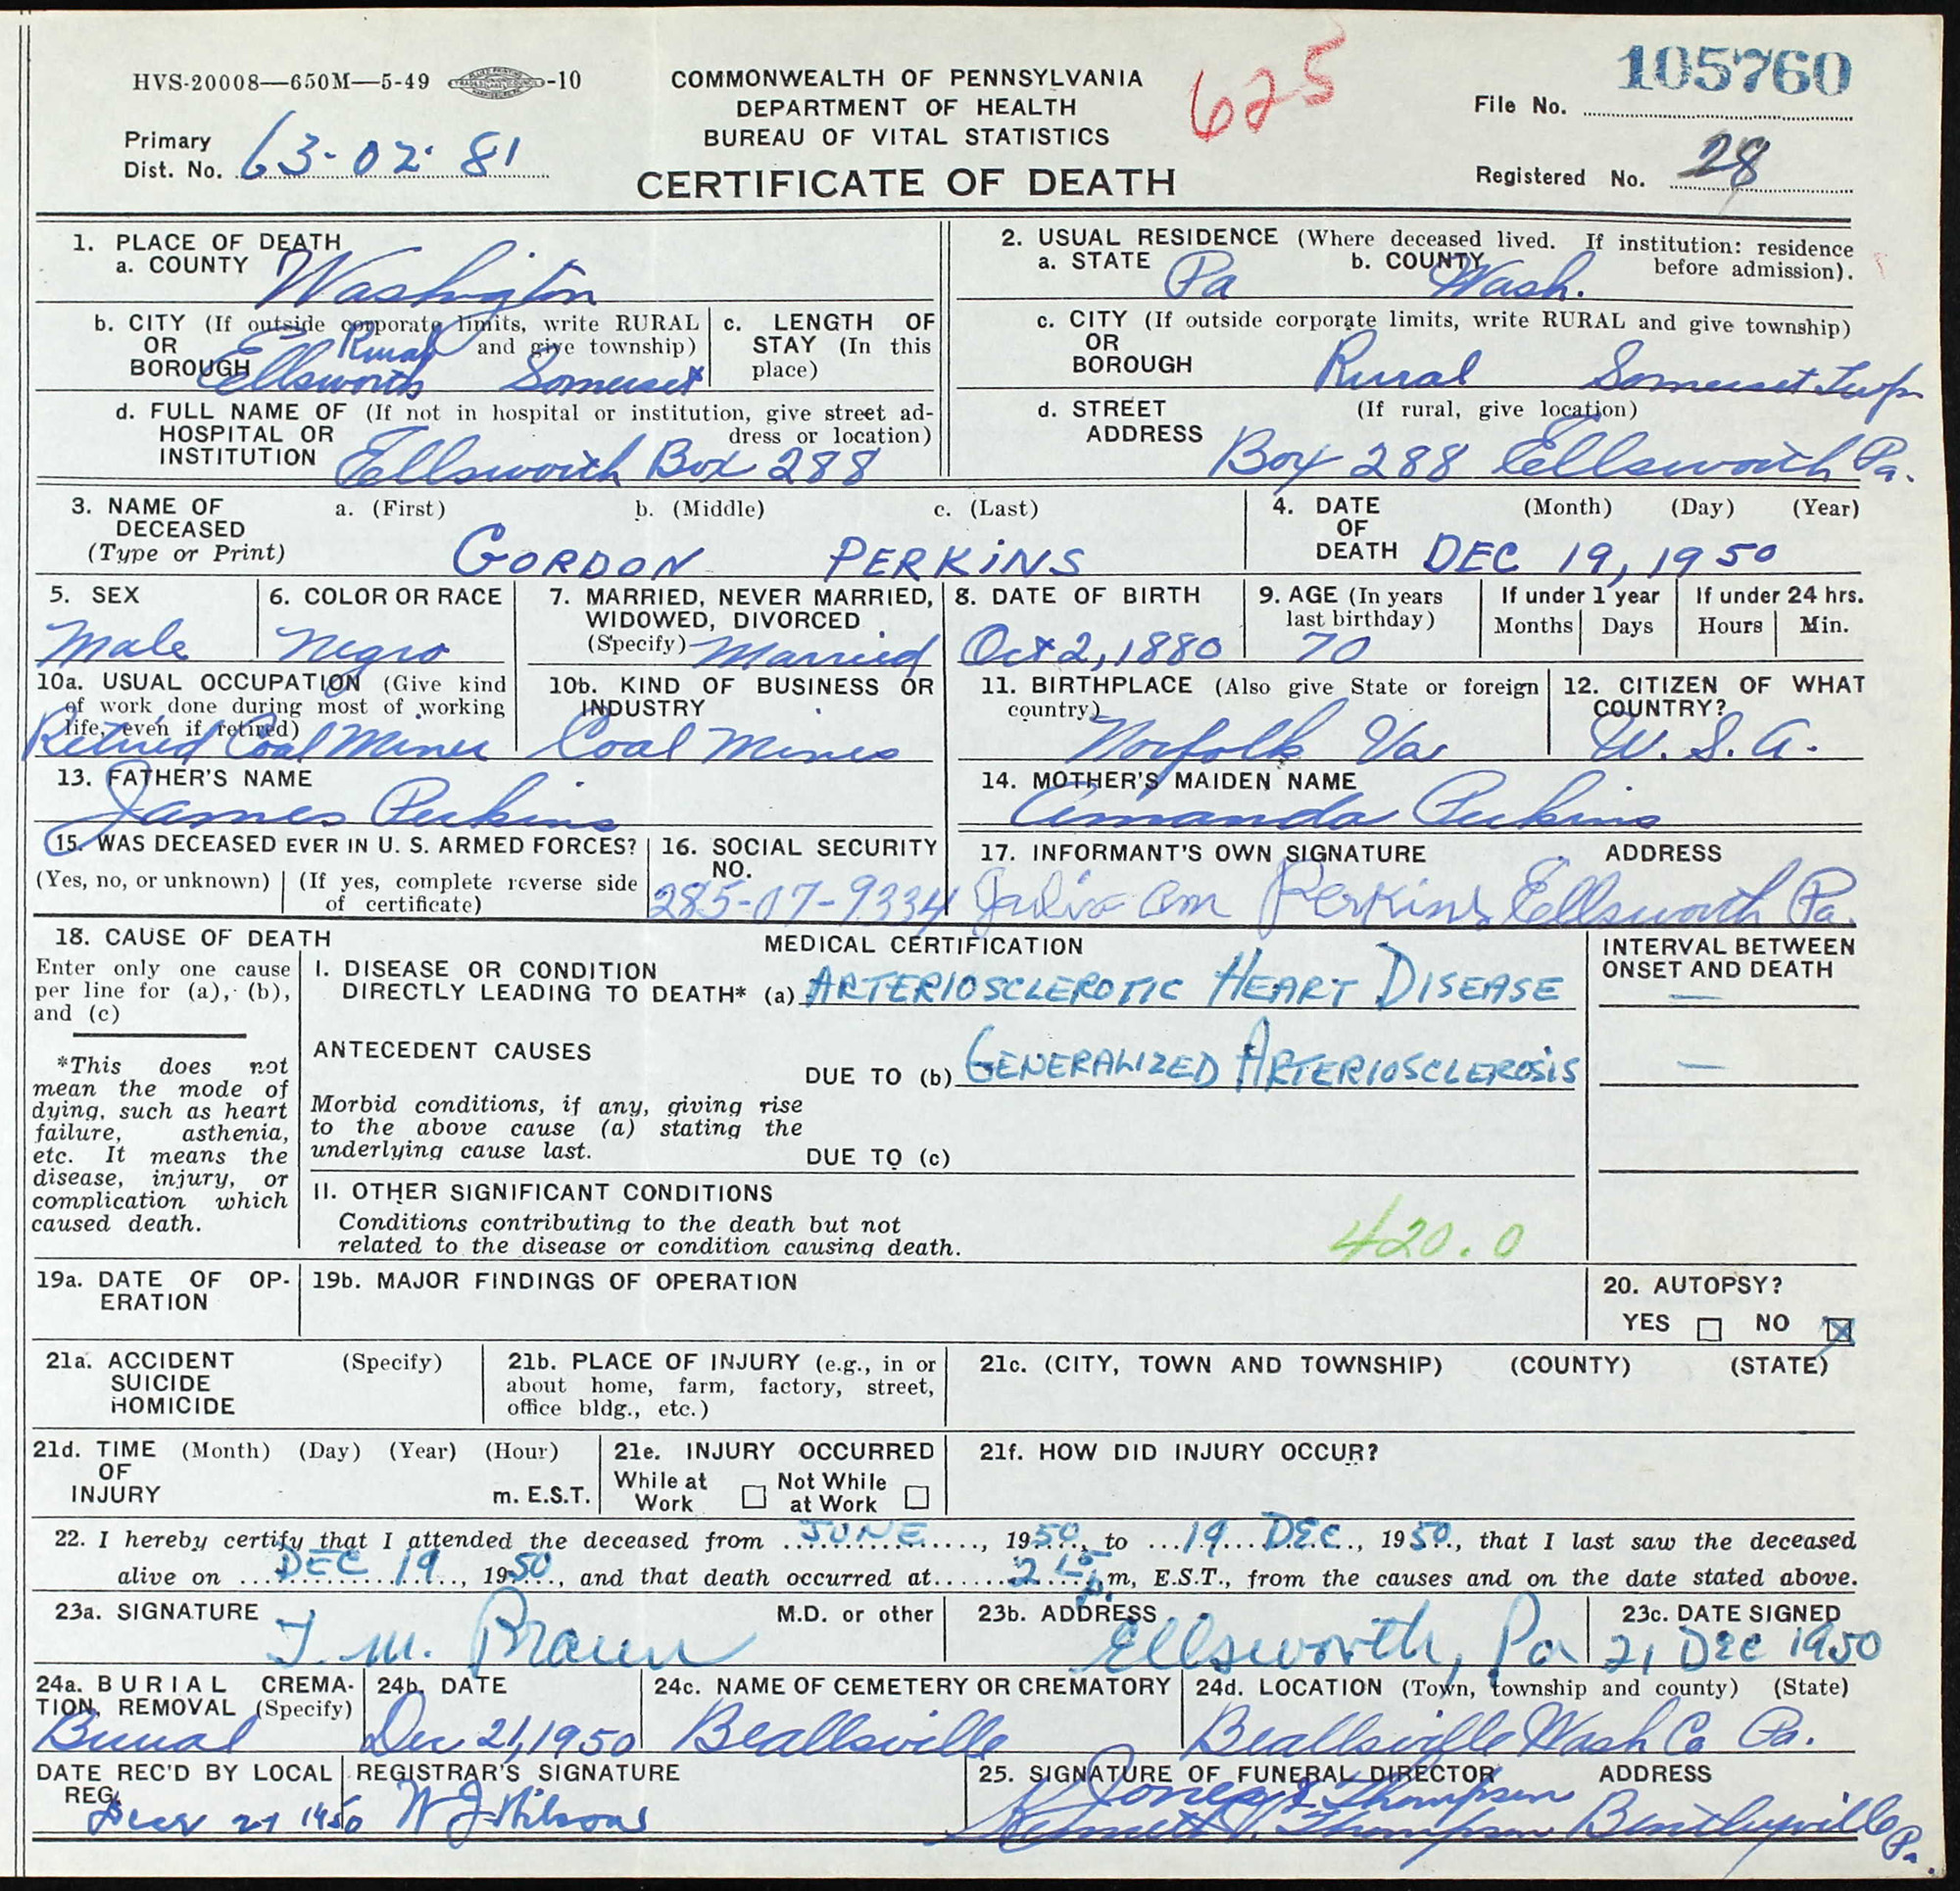 HVS-20008—650M—5-49 -10
COMMONWEALTH OF PENNSYLVANIA
DEPARTMENT OF HEALTH
BUREAU OF VITAL STATISTICS
CERTIFICATE OF DEATH
625
105760
File No.
Primary
Dist. No. 63-02-81
Registered No. 28
1. PLACE OF DEATH
a. COUNTY Washington
b. CITY (If outside corporate limits, write RURAL
OR Rural and give township)
BOROUGH Ellsworth Somerset
c. LENGTH OF
STAY (In this
place)
d. FULL NAME OF (If not in hospital or institution, give street ad-
HOSPITAL OR dress or location)
INSTITUTION Ellsworth Box 288
2. USUAL RESIDENCE (Where deceased lived. If institution: residence
a. STATE Pa b. COUNTY Wash. before admission).
c. CITY (If outside corporate limits, write RURAL and give township)
OR
BOROUGH Rural Somerset Twp
d. STREET (If rural, give location)
ADDRESS Box 288 Ellsworth Pa.
3. NAME OF a. (First) b. (Middle) c. (Last)
DECEASED
(Type or Print) GORDON PERKINS
4. DATE (Month) (Day) (Year)
OF
DEATH DEC 19, 1950
5. SEX
Male
6. COLOR OR RACE
Negro
7. MARRIED, NEVER MARRIED,
WIDOWED, DIVORCED
(Specify) Married
8. DATE OF BIRTH
Oct 2, 1880
9. AGE (In years
last birthday)
70
If under 1 year
Months Days
If under 24 hrs.
Hours Min.
10a. USUAL OCCUPATION (Give kind
of work done during most of working
life, even if retired)
Retired Coal Miner
10b. KIND OF BUSINESS OR
INDUSTRY
Coal Mines
11. BIRTHPLACE (Also give State or foreign
country)
Norfolk Va
12. CITIZEN OF WHAT
COUNTRY?
U. S. A.
13. FATHER'S NAME
James Perkins
14. MOTHER'S MAIDEN NAME
Amanda Perkins
15. WAS DECEASED EVER IN U. S. ARMED FORCES?
(Yes, no, or unknown) (If yes, complete reverse side
of certificate)
16. SOCIAL SECURITY
NO.
285-07-9334
17. INFORMANT'S OWN SIGNATURE ADDRESS
Perkins Ellsworth Pa.
18. CAUSE OF DEATH
Enter only one cause
per line for (a), (b),
and (c)
*This does not
mean the mode of
dying, such as heart
failure, asthenia,
etc. It means the
disease, injury, or
complication which
caused death.
MEDICAL CERTIFICATION
I. DISEASE OR CONDITION
DIRECTLY LEADING TO DEATH* (a) ARTERIOSCLEROTIC HEART DISEASE
ANTECEDENT CAUSES
DUE TO (b) GENERALIZED ARTERIOSCLEROSIS
Morbid conditions, if any, giving rise
to the above cause (a) stating the
underlying cause last.
DUE TO (c)
II. OTHER SIGNIFICANT CONDITIONS
Conditions contributing to the death but not
related to the disease or condition causing death.
420.0
INTERVAL BETWEEN
ONSET AND DEATH
—
—
19a. DATE OF OP-
ERATION
19b. MAJOR FINDINGS OF OPERATION
20. AUTOPSY?
YES NO X
21a. ACCIDENT (Specify)
SUICIDE
HOMICIDE
21b. PLACE OF INJURY (e.g., in or
about home, farm, factory, street,
office bldg., etc.)
21c. (CITY, TOWN AND TOWNSHIP) (COUNTY) (STATE)
21d. TIME (Month) (Day) (Year) (Hour)
OF
INJURY m. E.S.T.
21e. INJURY OCCURRED
While at Not While
Work at Work
21f. HOW DID INJURY OCCUR?
22. I hereby certify that I attended the deceased from JUNE, 1950, to 19 DEC, 1950, that I last saw the deceased
alive on DEC 19, 1950, and that death occurred at 2 15 p.m, E.S.T., from the causes and on the date stated above.
23a. SIGNATURE M.D. or other
J. M. Braun
23b. ADDRESS
Ellsworth, Pa
23c. DATE SIGNED
21 DEC 1950
24a. BURIAL CREMA-
TION, REMOVAL (Specify)
Burial
24b. DATE
Dec 21, 1950
24c. NAME OF CEMETERY OR CREMATORY
Beallsville
24d. LOCATION (Town, township and county) (State)
Beallsville Wash Co Pa.
DATE REC'D BY LOCAL
REG.
21 1950
REGISTRAR'S SIGNATURE
W J Wilson
25. SIGNATURE OF FUNERAL DIRECTOR ADDRESS
Jones & Thompson
Kenneth V. Thompson Bentleyville Pa.